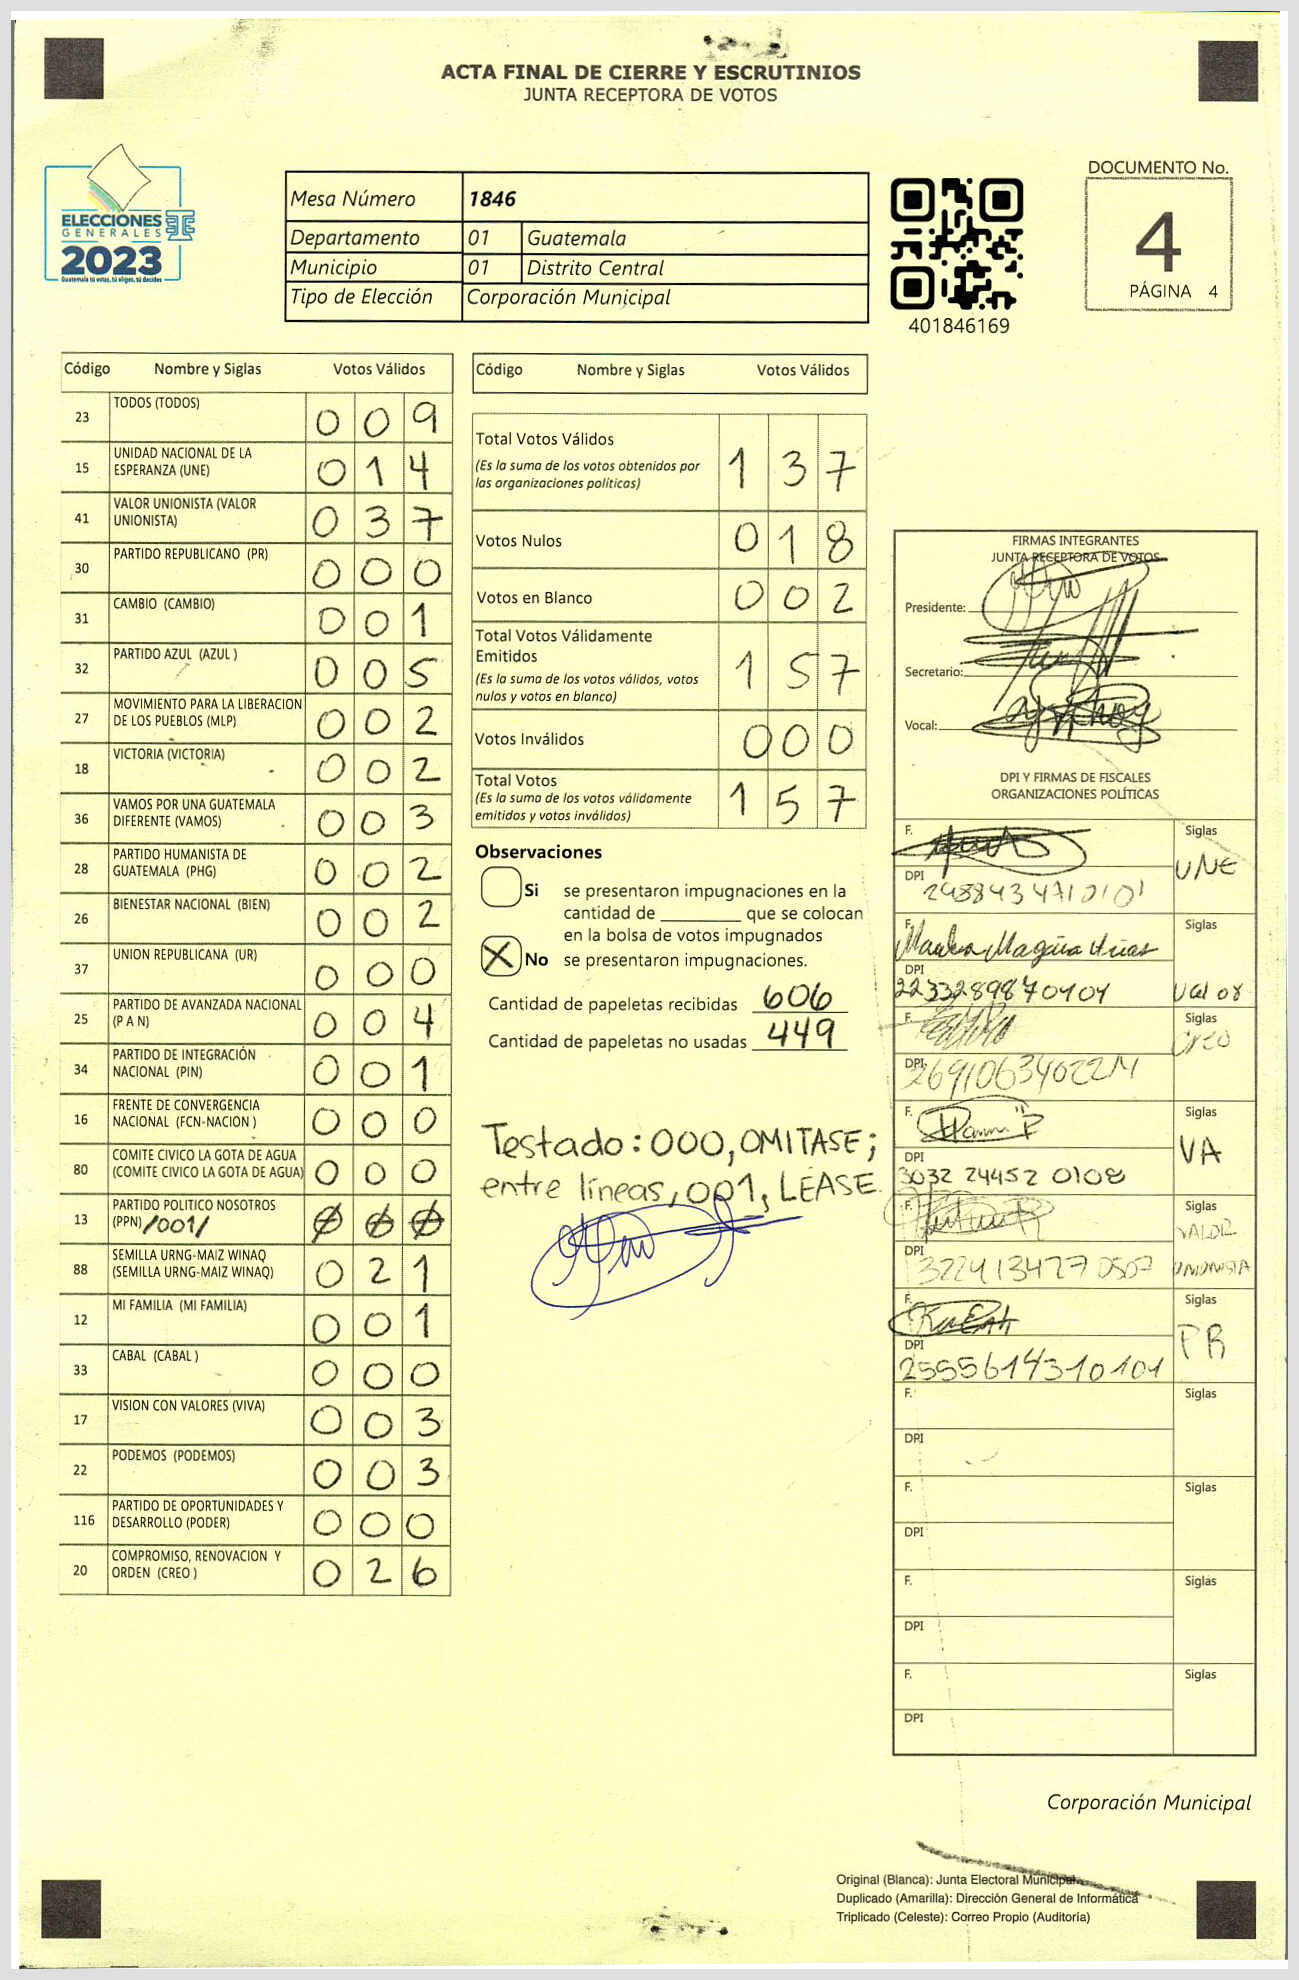 ACTA FINAL DE CIERRE Y ESCRUTINIOS
JUNTA RECEPTORA DE VOTOS
ELECCIONES
GENERALES
2023
Guatemala tú votas, tú eliges, tú decides
Mesa Número 1846
Departamento 01 Guatemala
Municipio 01 Distrito Central
Tipo de Elección Corporación Municipal
401846169
DOCUMENTO No.
4
PÁGINA 4
Código Nombre y Siglas Votos Válidos
23 TODOS (TODOS) 0 0 9
15 UNIDAD NACIONAL DE LA
ESPERANZA (UNE) 0 1 4
41 VALOR UNIONISTA (VALOR
UNIONISTA) 0 3 7
30 PARTIDO REPUBLICANO (PR) 0 0 0
31 CAMBIO (CAMBIO) 0 0 1
32 PARTIDO AZUL (AZUL ) 0 0 5
27 MOVIMIENTO PARA LA LIBERACION
DE LOS PUEBLOS (MLP) 0 0 2
18 VICTORIA (VICTORIA) 0 0 2
36 VAMOS POR UNA GUATEMALA
DIFERENTE (VAMOS) 0 0 3
28 PARTIDO HUMANISTA DE
GUATEMALA (PHG) 0 0 2
26 BIENESTAR NACIONAL (BIEN) 0 0 2
37 UNION REPUBLICANA (UR) 0 0 0
25 PARTIDO DE AVANZADA NACIONAL
(P A N) 0 0 4
34 PARTIDO DE INTEGRACIÓN
NACIONAL (PIN) 0 0 1
16 FRENTE DE CONVERGENCIA
NACIONAL (FCN-NACION ) 0 0 0
80 COMITE CIVICO LA GOTA DE AGUA
(COMITE CIVICO LA GOTA DE AGUA) 0 0 0
13 PARTIDO POLITICO NOSOTROS
(PPN) /001/ 0 0 0
88 SEMILLA URNG-MAIZ WINAQ
(SEMILLA URNG-MAIZ WINAQ) 0 2 1
12 MI FAMILIA (MI FAMILIA) 0 0 1
33 CABAL (CABAL ) 0 0 0
17 VISION CON VALORES (VIVA) 0 0 3
22 PODEMOS (PODEMOS) 0 0 3
116 PARTIDO DE OPORTUNIDADES Y
DESARROLLO (PODER) 0 0 0
20 COMPROMISO, RENOVACION Y
ORDEN (CREO ) 0 2 6
Código Nombre y Siglas Votos Válidos
Total Votos Válidos 1 3 7
(Es la suma de los votos obtenidos por
las organizaciones políticas)
Votos Nulos 0 1 8
Votos en Blanco 0 0 2
Total Votos Válidamente
Emitidos 1 5 7
(Es la suma de los votos válidos, votos
nulos y votos en blanco)
Votos Inválidos 0 0 0
Total Votos 1 5 7
(Es la suma de los votos válidamente
emitidos y votos inválidos)
Observaciones
Si se presentaron impugnaciones en la
cantidad de ________ que se colocan
en la bolsa de votos impugnados
X No se presentaron impugnaciones.
Cantidad de papeletas recibidas 606
Cantidad de papeletas no usadas 449
Testado: 000, OMITASE;
entre líneas, 001, LEASE.
FIRMAS INTEGRANTES
JUNTA RECEPTORA DE VOTOS
Presidente:
Secretario:
Vocal:
DPI Y FIRMAS DE FISCALES
ORGANIZACIONES POLÍTICAS
F. Siglas UNE
DPI 2488434710101
F. Siglas Valor
DPI 2233289870101
F. Siglas Creo
DPI
F. Siglas VA
DPI 3032 24452 0108
F. Siglas VALOR UNIONISTA
DPI 3224134770507
F. Siglas PR
DPI 2555614310101
F. Siglas
DPI
F. Siglas
DPI
F. Siglas
DPI
F. Siglas
DPI
Corporación Municipal
Original (Blanca): Junta Electoral Municipal
Duplicado (Amarilla): Dirección General de Informática
Triplicado (Celeste): Correo Propio (Auditoría)